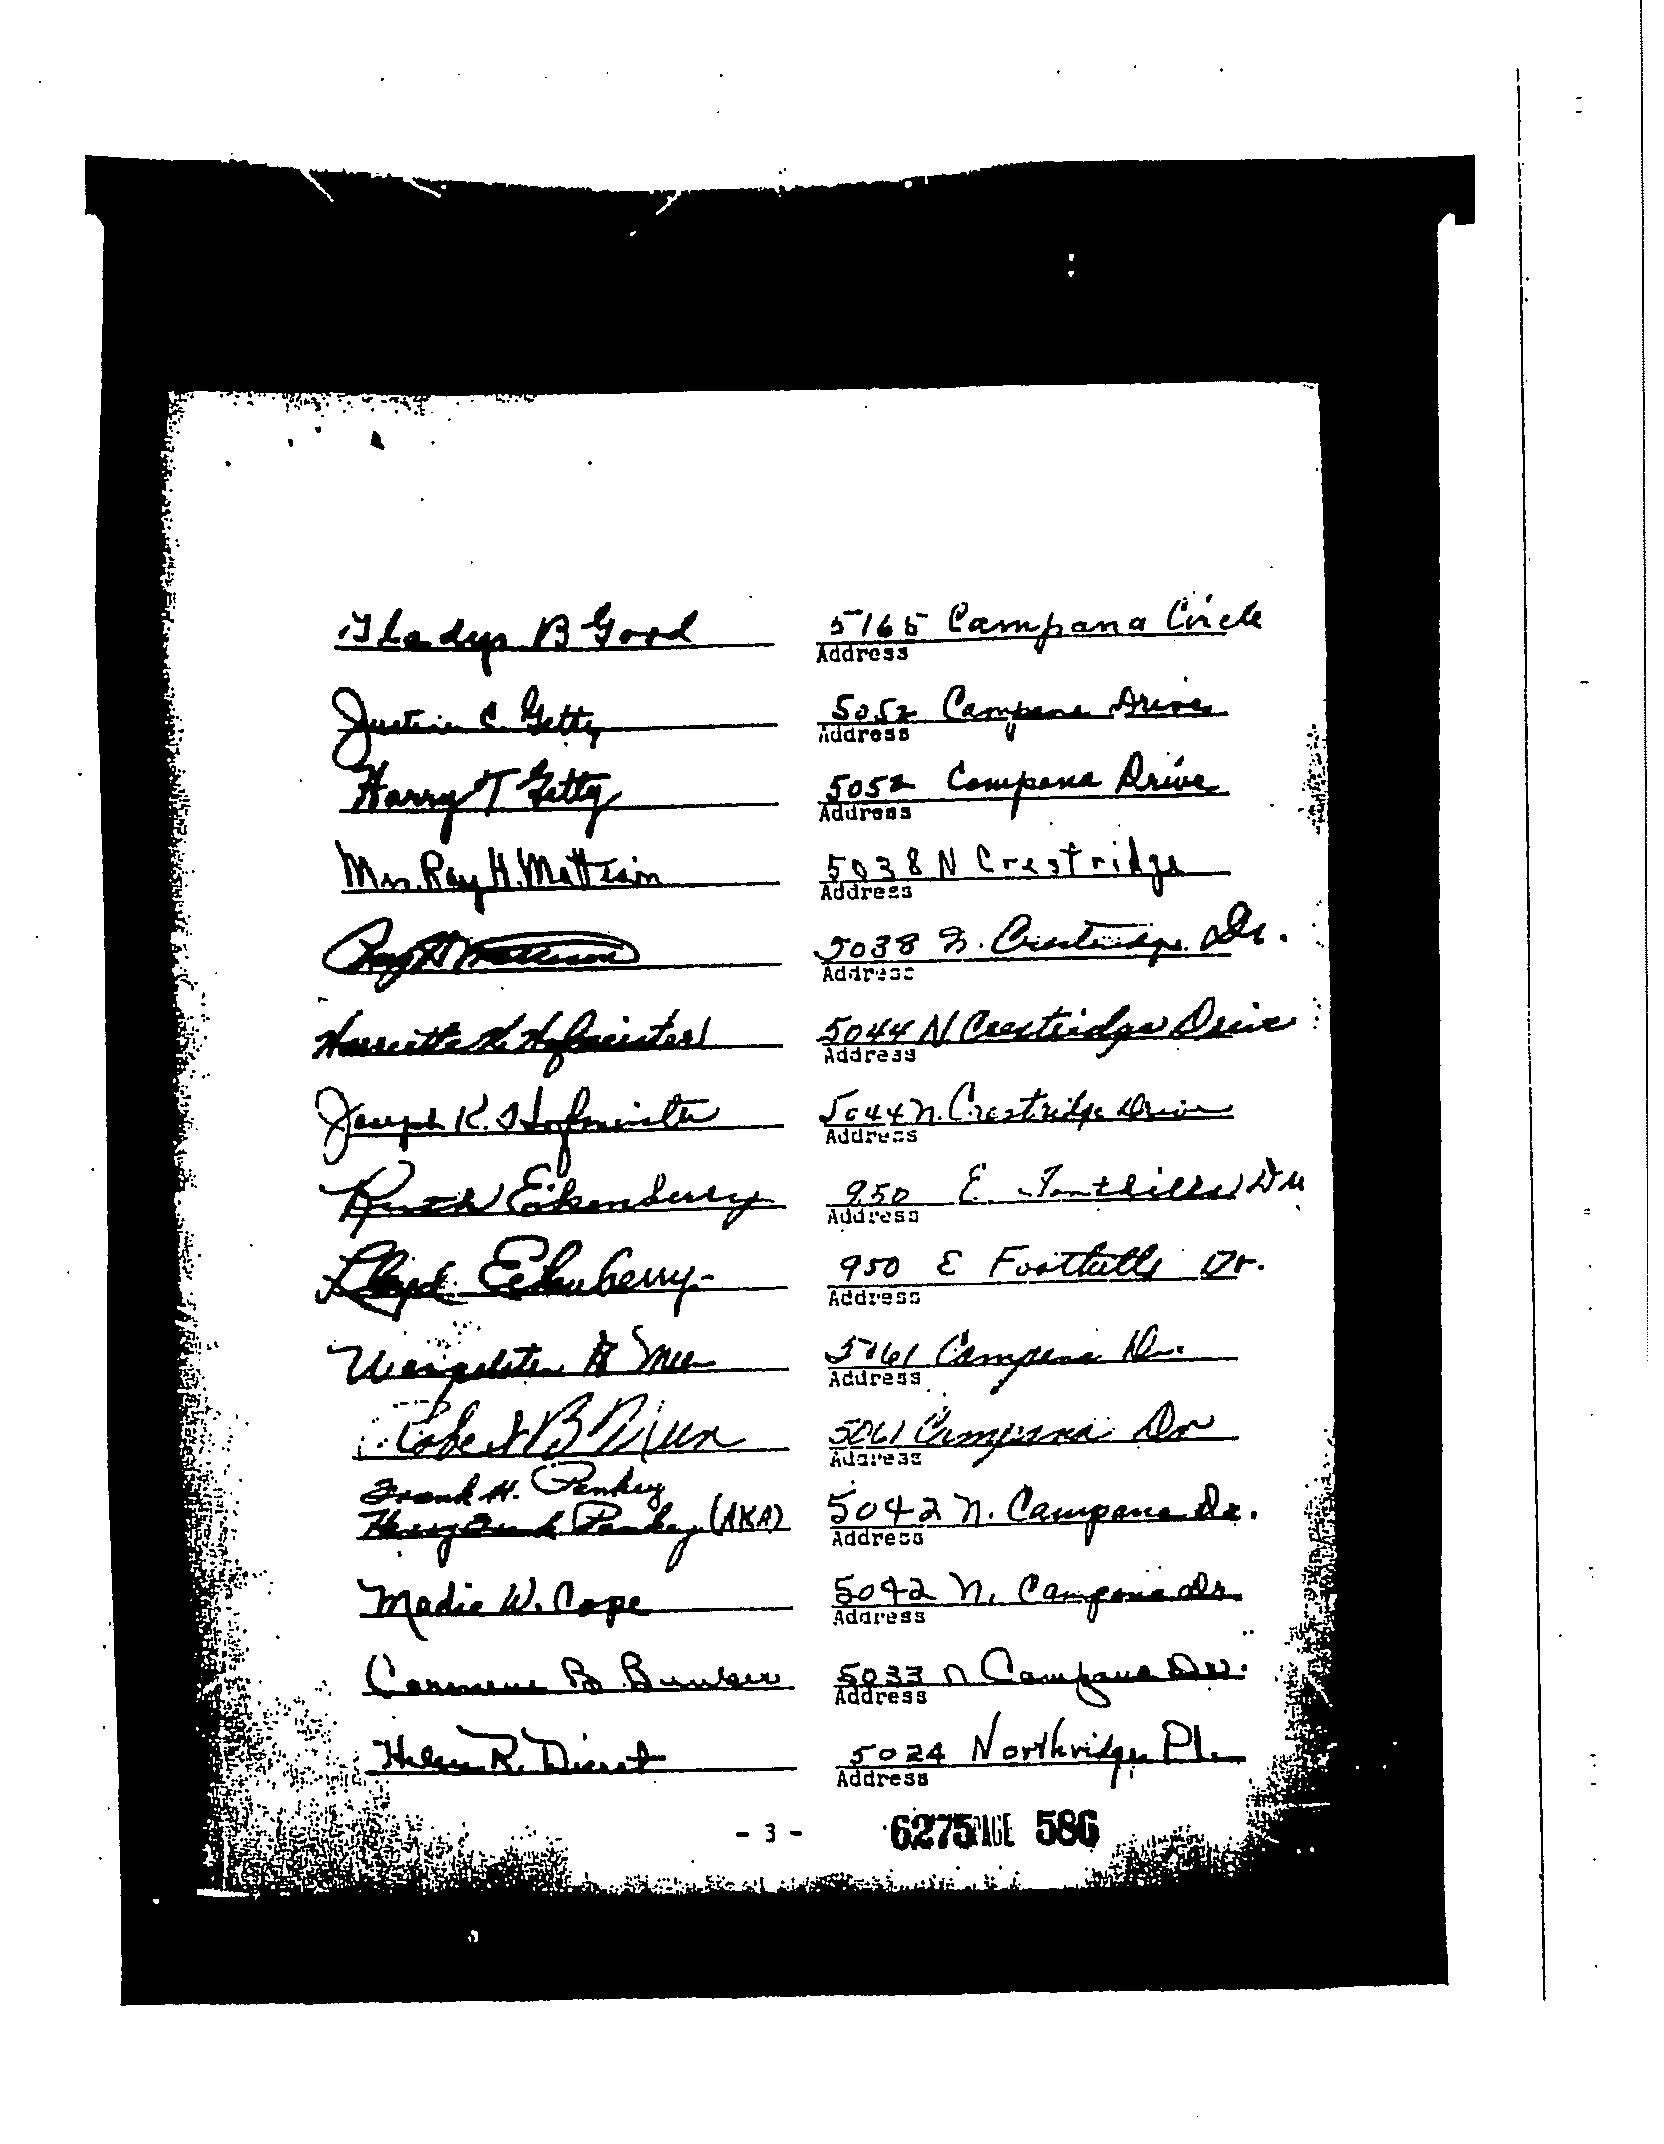 Gladys B Good 5165 Campana Circle
Address
Justin C. Getty 5052 Campana Drive
Address
Harry T Getty 5052 Campana Drive
Address
Mrs. Ray H. Mattison 5038 N Crestridge
Address
Ray H Mattison 5038 N. Crestridge Dr.
Address
Harriette K Hofmeister 5044 N Crestridge Drive
Address
Joseph K. Hofmeister 5044 N. Crestridge Drive
Address
Ruth Eikenberry 950 E. Foothills Dr
Address
Lloyd Eikenberry 950 E Foothills Dr.
Address
5061 Campana Dr.
Address
Robert B Nien 5061 Campana Dr
Address
Frank H. Pankey
Henry Frank Pankey (AKA) 5042 N. Campana Dr.
Address
Madie W. Cope 5042 N. Campana Dr.
Address
B 5033 N Campana Dr.
Address
Helen R. Dierst 5024 Northridge Pl.
Address
- 3 - 6275 PAGE 586